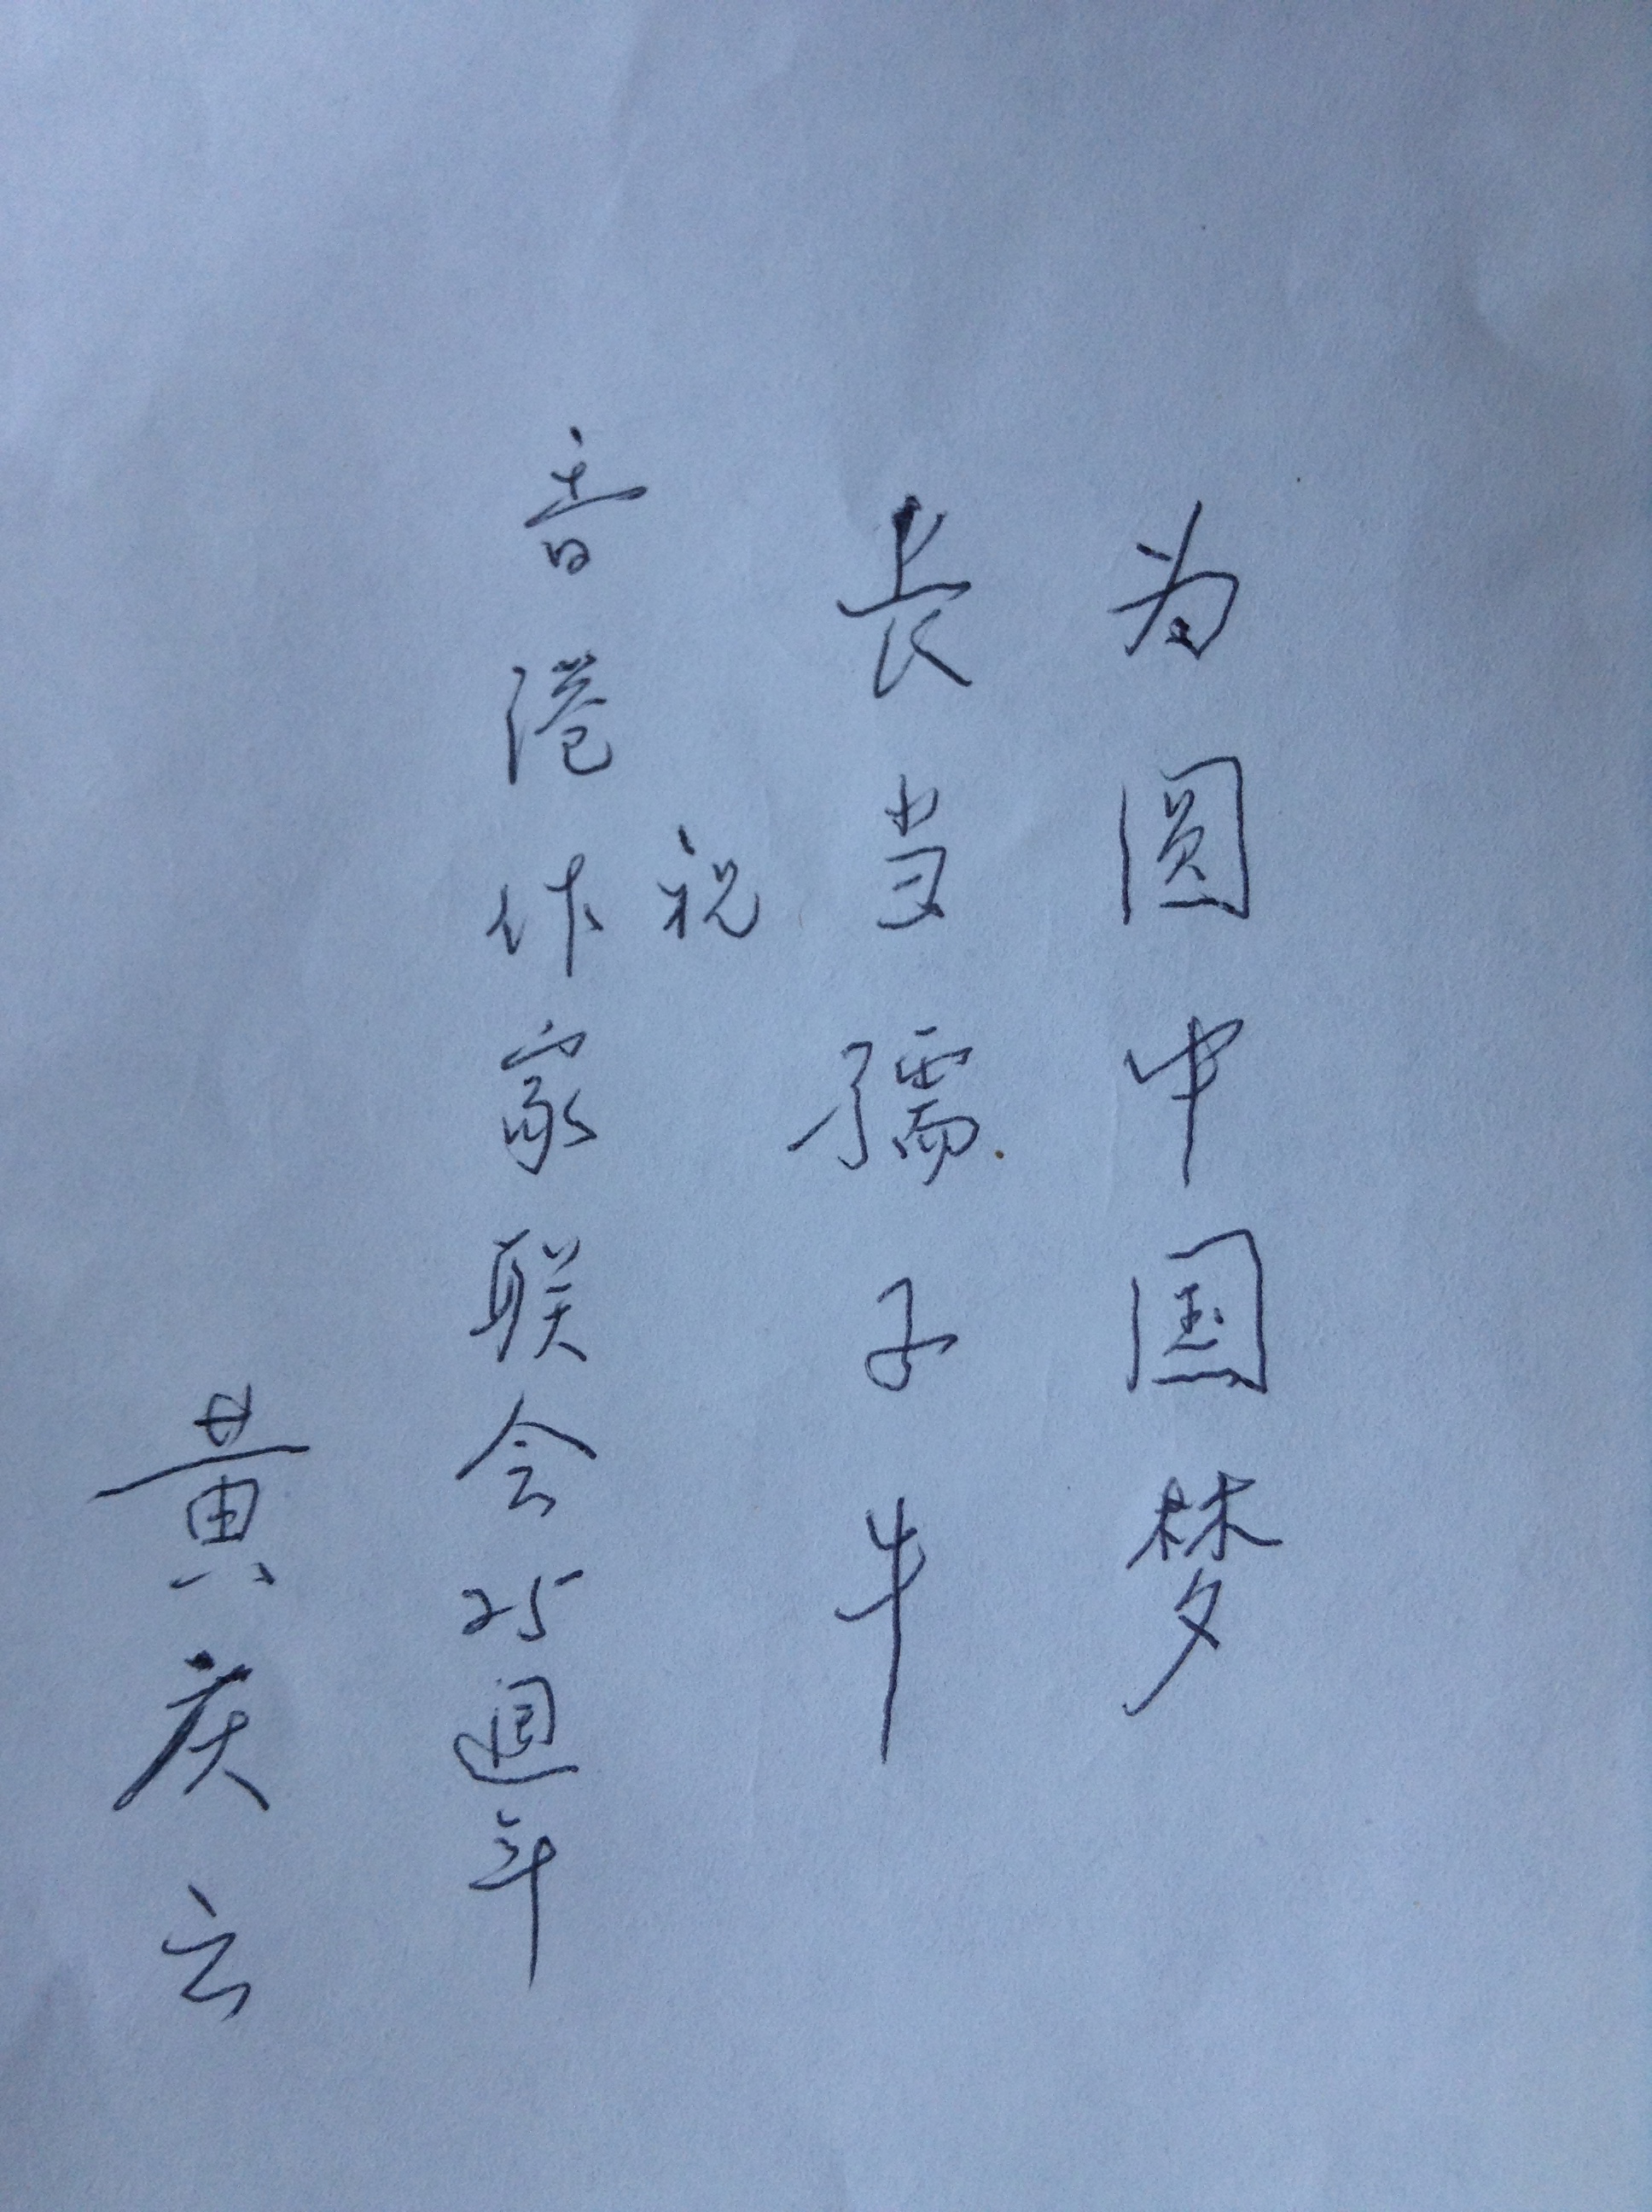 为圆中国梦
长当孺子牛
祝
香港作家联会25週年
黄庆云